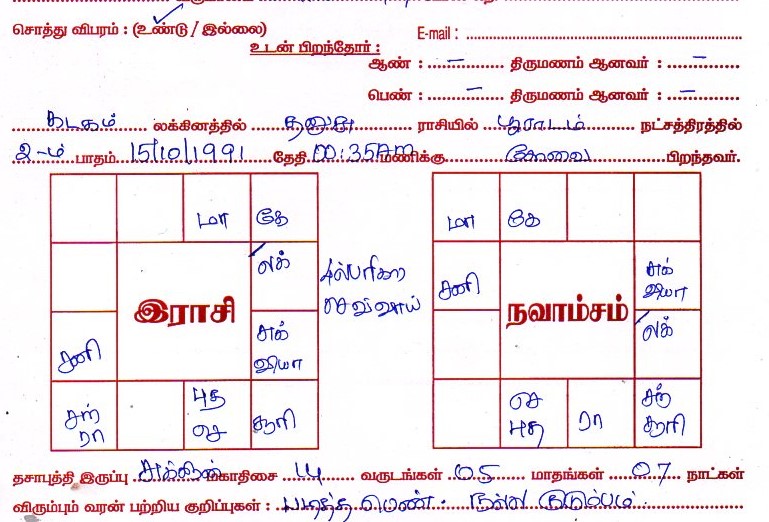 சொத்து விபரம் : (உண்டு / இல்லை) E-mail :
உடன் பிறந்தோர் :
ஆண் : – திருமணம் ஆனவர் : –
பெண் : – திருமணம் ஆனவர் : –
கடகம் லக்கினத்தில் தனுசு ராசியில் பூராடம் நட்சத்திரத்தில்
2-ம் பாதம் 15/10/1991 தேதி 00:35AM மணிக்கு கோவை பிறந்தவர்.
மா கே
லக்
இராசி
சனி
சுக் வியா
சந் ரா
புத செ
சூரி
பரிகார செவ்வாய்
மா கே
சனி
சுக் வியா
நவாம்சம்
லக்
செ புத
ரா
சந் சூரி
தசாபுத்தி இருப்பு சுக்கிரன் மகாதிசை 14 வருடங்கள் 05 மாதங்கள் 07 நாட்கள்
விரும்பும் வரன் பற்றிய குறிப்புகள் : படித்த பெண். நல்ல குடும்பம்.